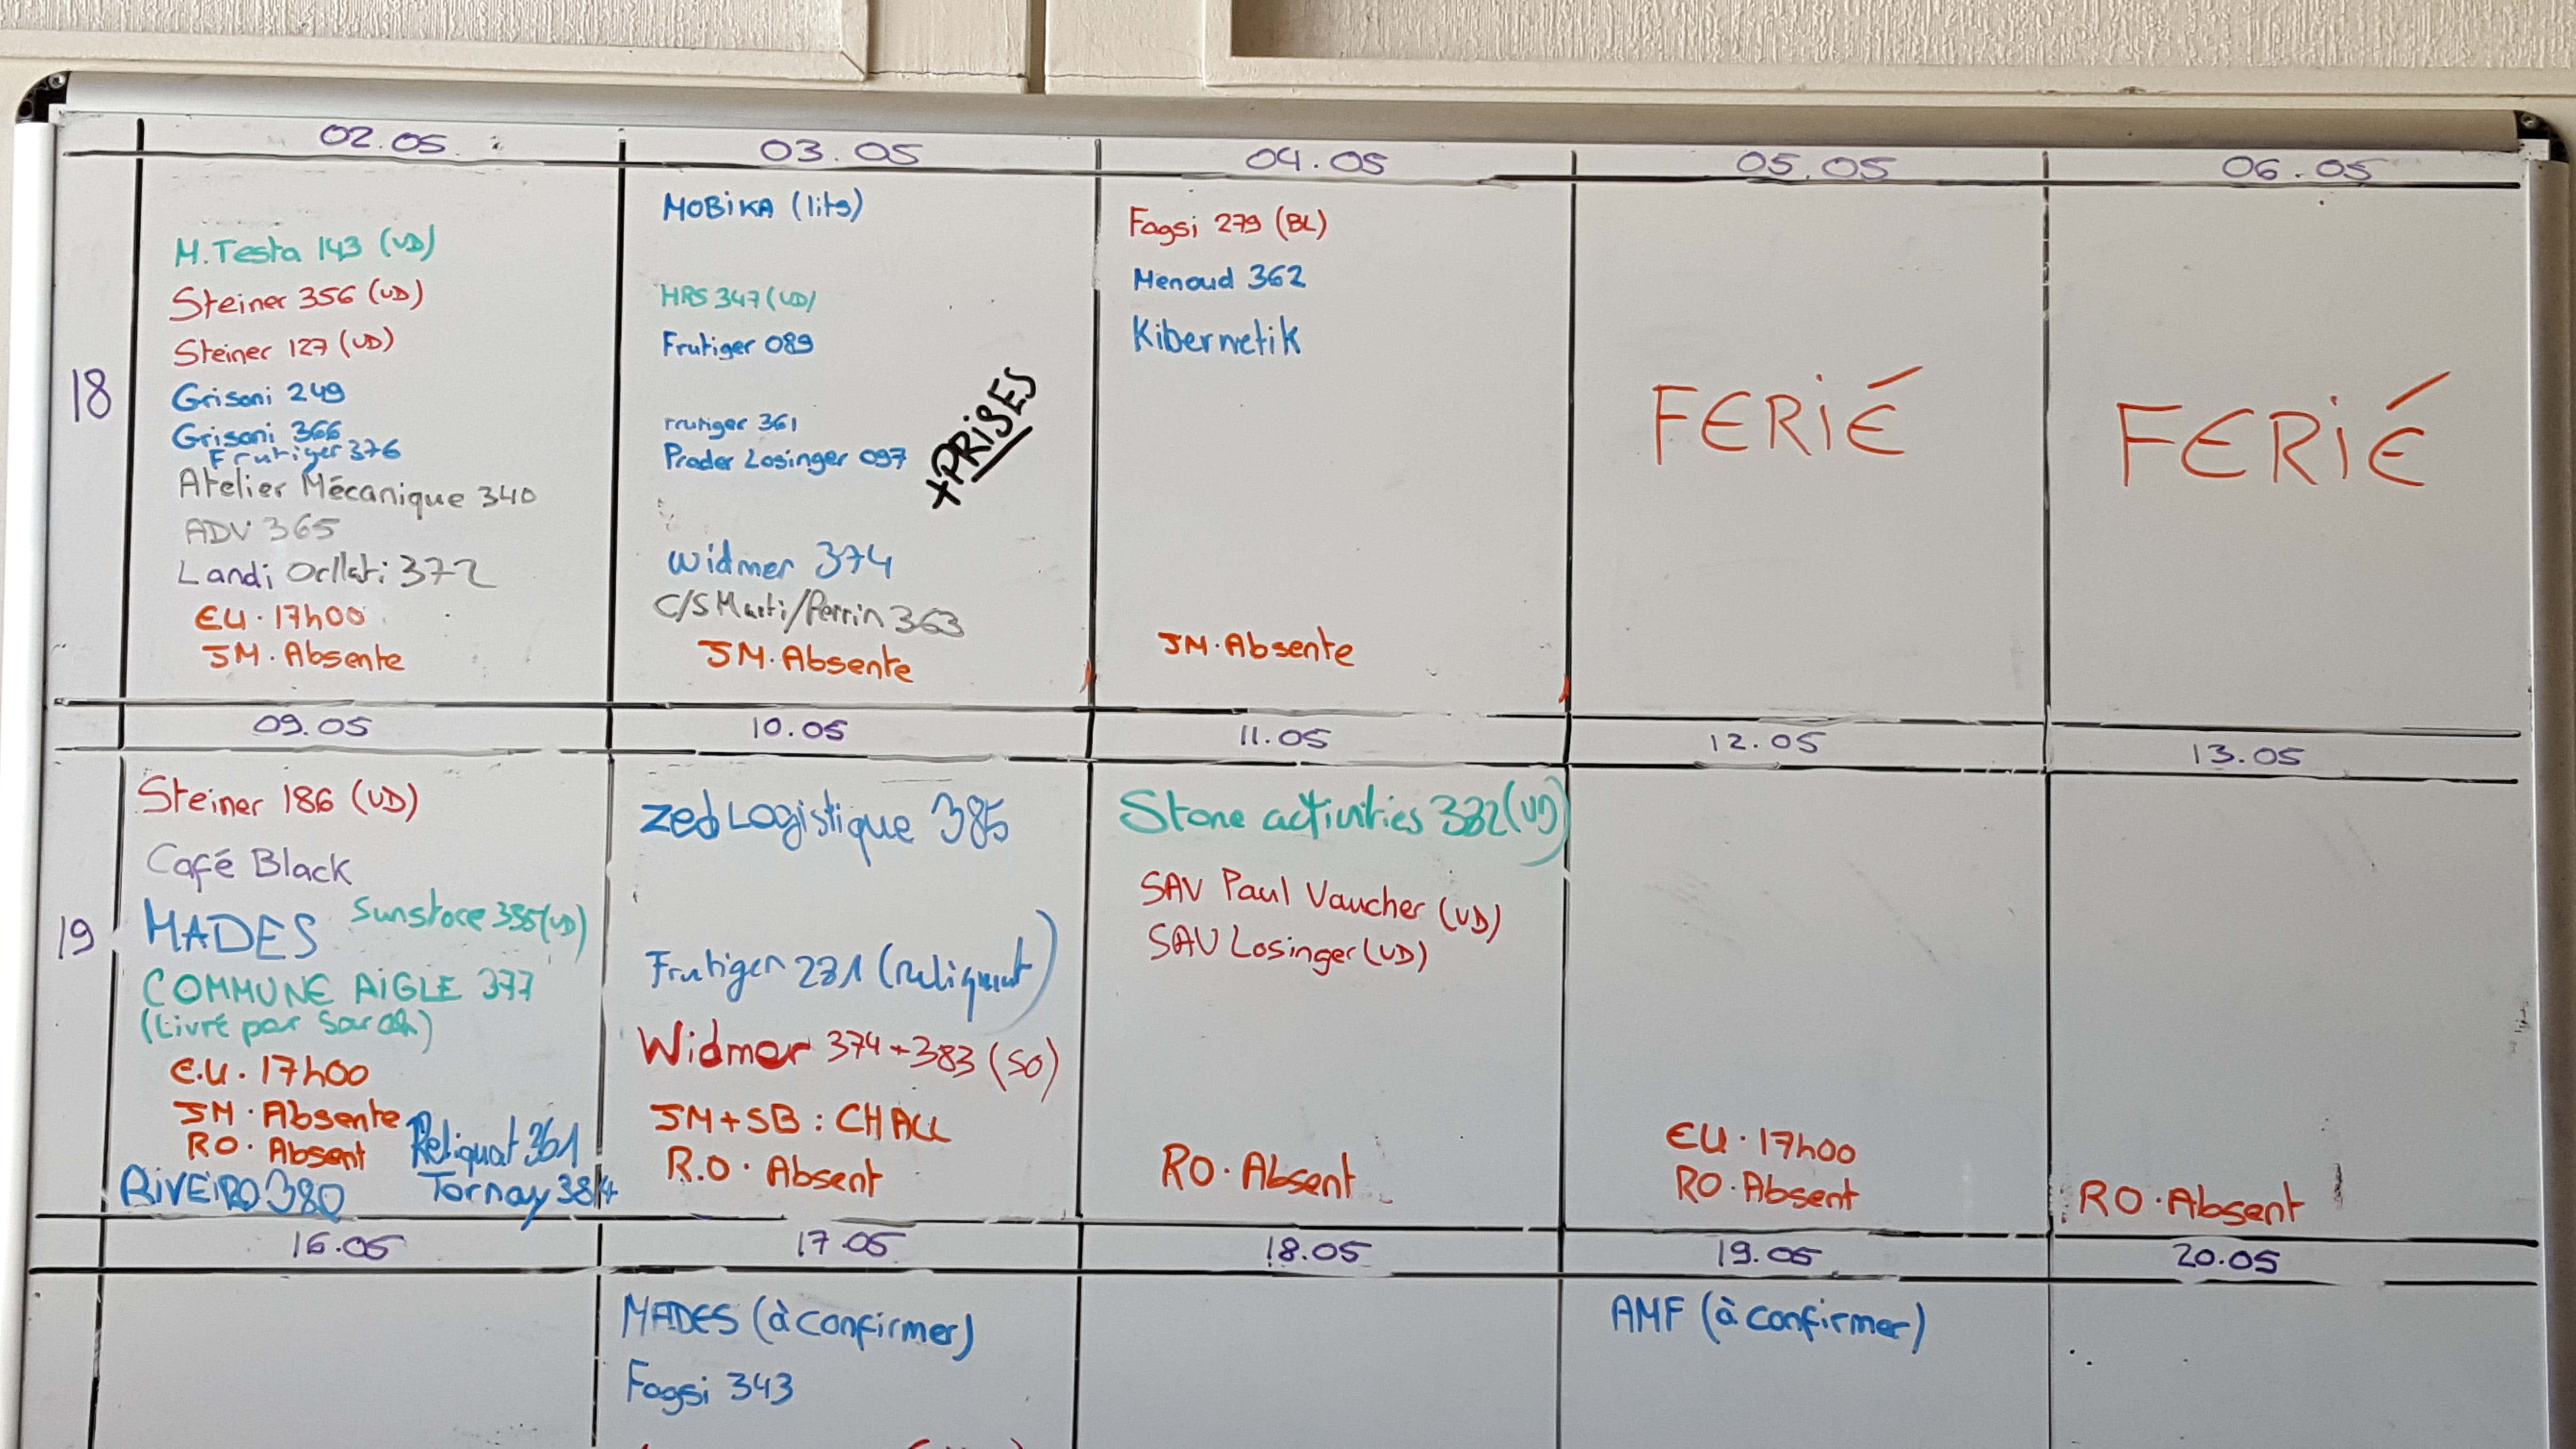 02.05
03.05
04.05
05.05
06.05
18
M.Testa 143 (VD)
Steiner 356 (VD)
Steiner 127 (VD)
Grisoni 249
Grisoni 366
Frutiger 376
Atelier Mécanique 340
ADV 365
Landi Orllati 372
EU · 17h00
JM · Absente
MOBiKA (lits)
HRS 347 (VD)
Frutiger 089
Frutiger 361
Prader Losinger 097
+PRISES
Widmer 374
C/S Marti/Perrin 363
JM · Absente
Fagsi 279 (BL)
Menoud 362
Kibernetik
JM · Absente
FERIÉ
FERIÉ
09.05
10.05
11.05
12.05
13.05
19
Steiner 186 (VD)
Café Black
MADES
Sunstore 355 (VD)
COMMUNE AIGLE 377
(Livré par Sarah)
E.U. 17h00
JM · Absente
RO · Absent
Reliquat 361
RIVEIRO 380
Tornay 384
Zed Logistique 385
Frutiger 281 (reliquat)
Widmer 374 + 383 (SO)
JM + SB : CHALL
R.O · Absent
Stone activities 382 (VD)
SAV Paul Vaucher (VD)
SAV Losinger (VD)
RO · Absent
EU · 17h00
RO · Absent
RO · Absent
16.05
17.05
18.05
19.05
20.05
MADES (à confirmer)
Fagsi 343
AMF (à confirmer)